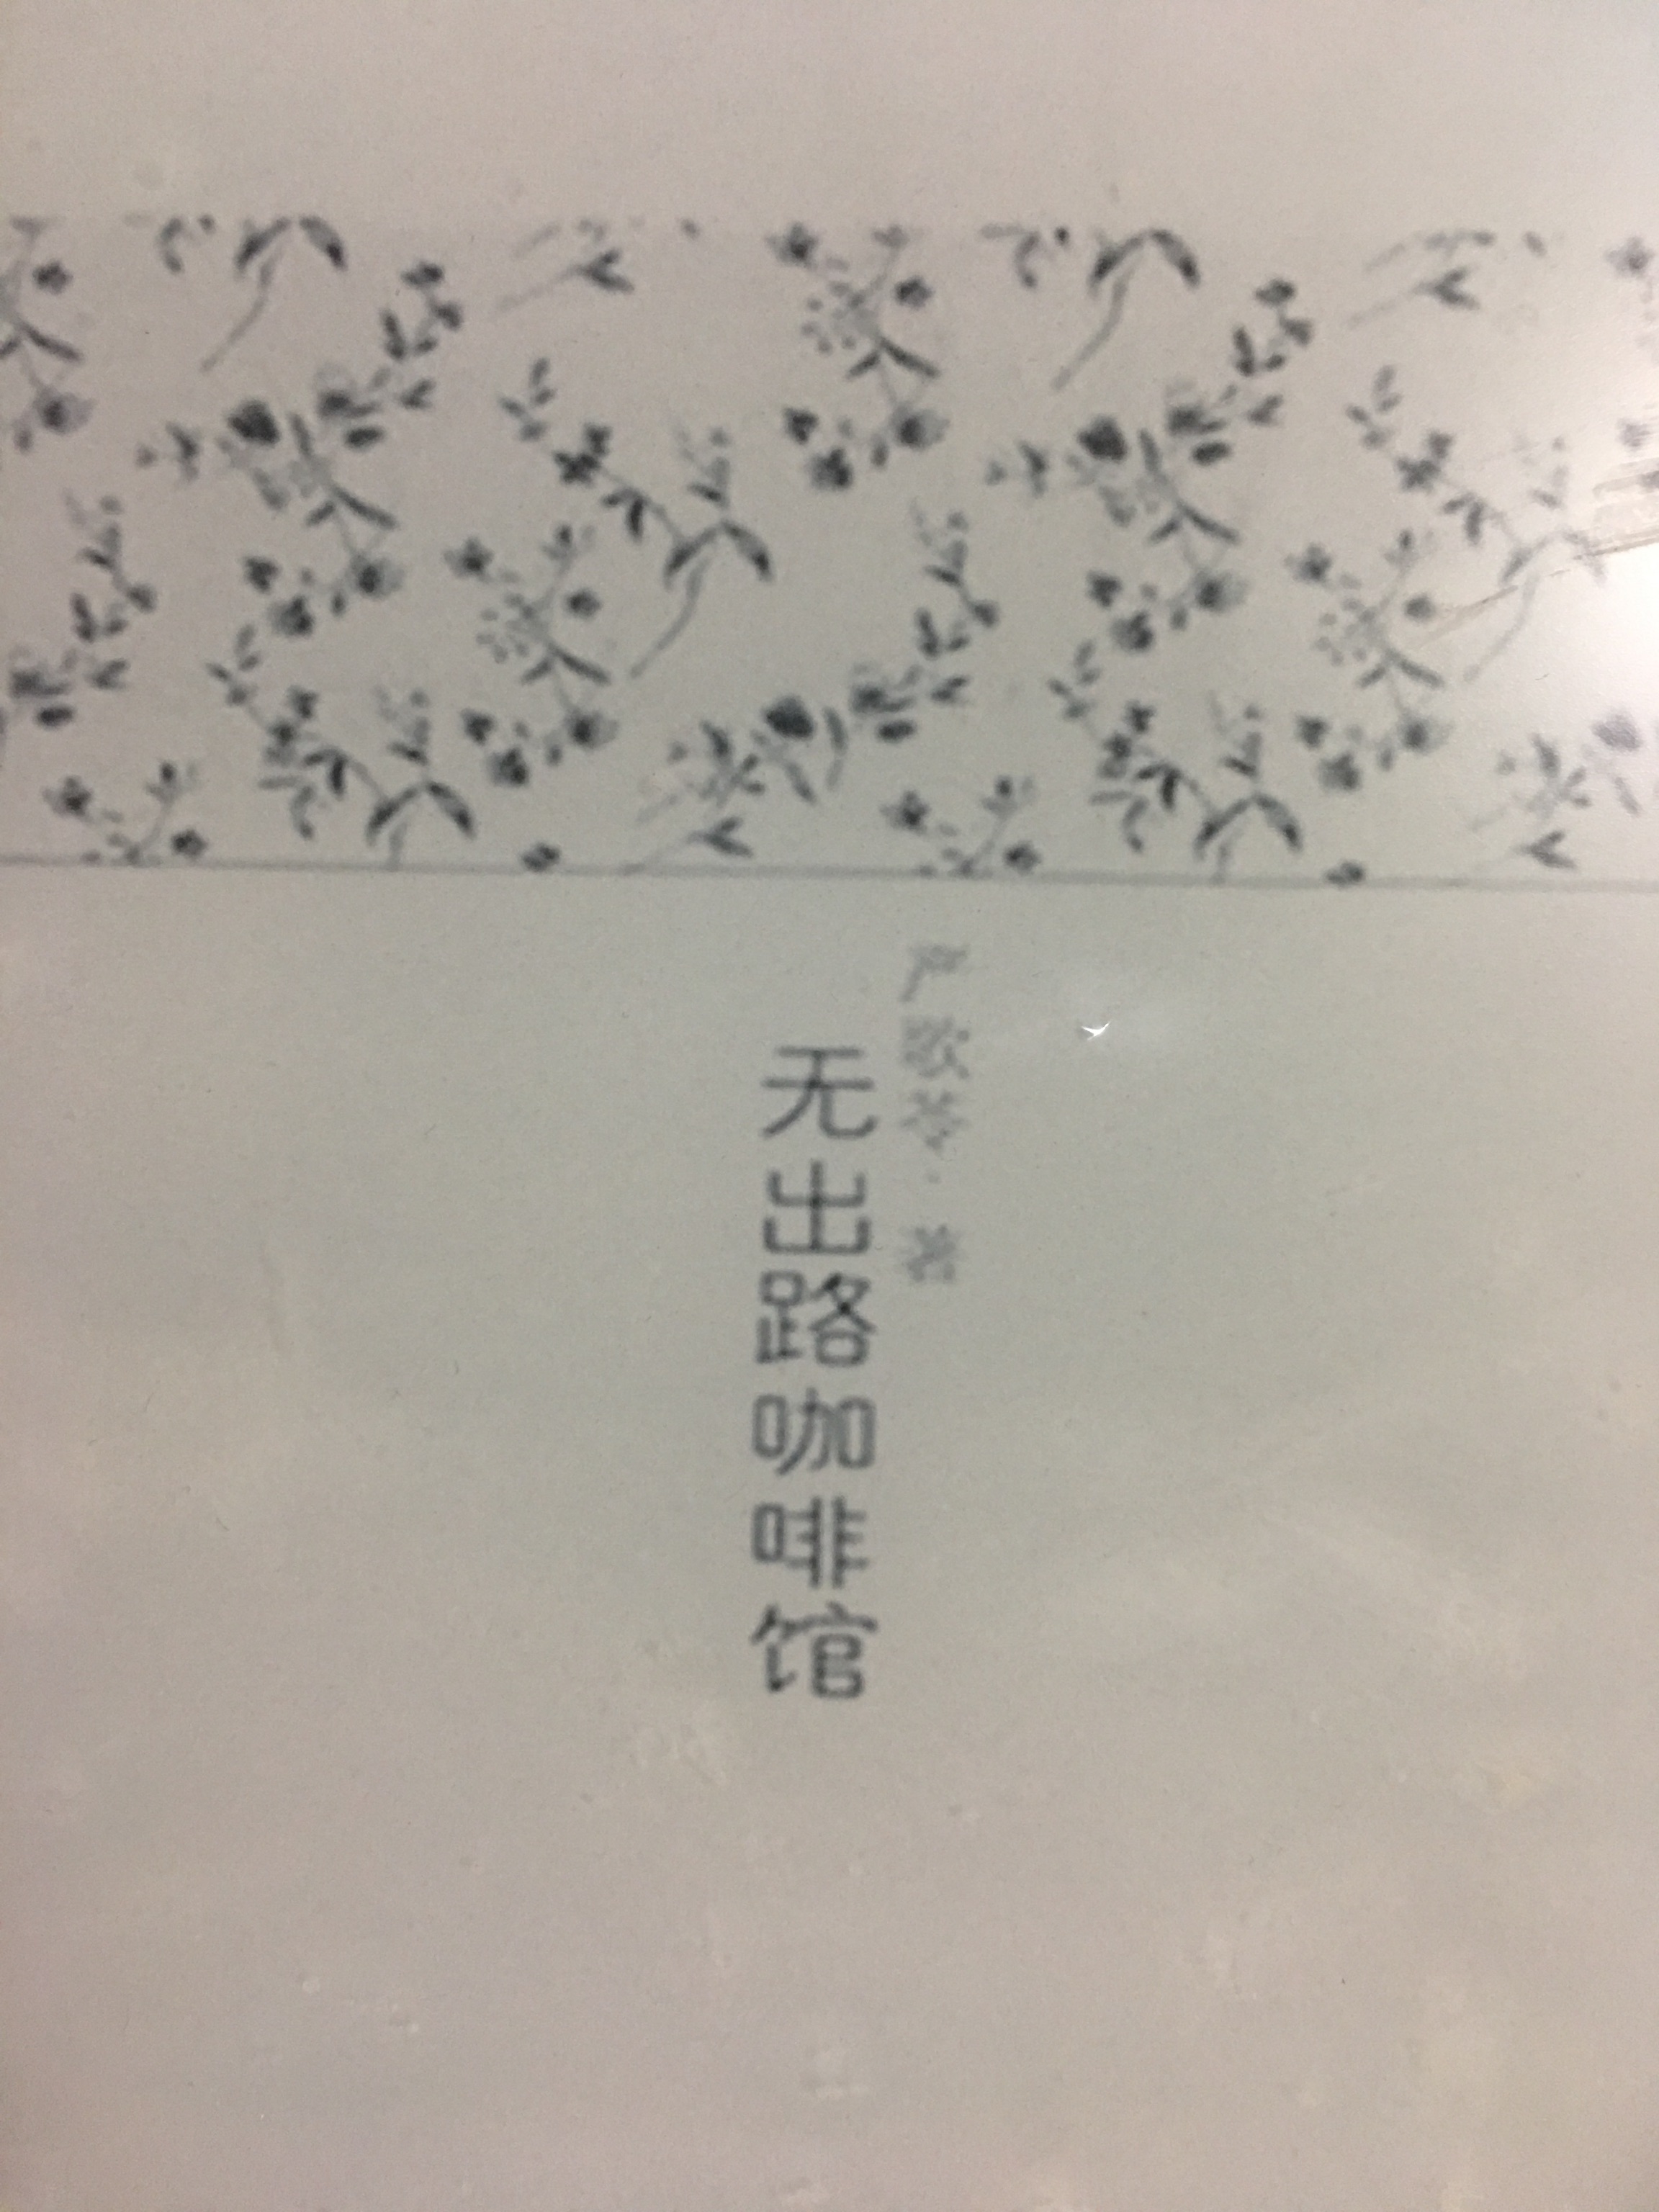 严歌苓·著
无出路咖啡馆